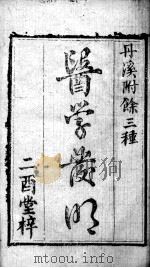 丹溪附餘三種
醫学发明
二酉堂梓